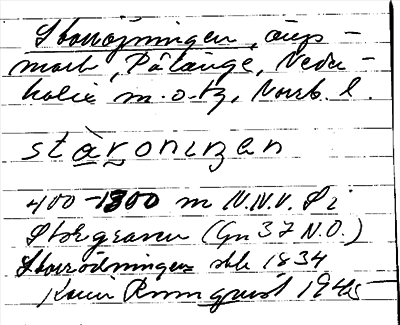 Storröjningen, äng-
mark, Pålänge, Neder-
kalix m. o. tg, Norrb. l.
stàroninzen
400-1300 m N.N.V. Pi
Storgranen (Gn 37 N.O.)
Storrödningen stk 1834
Karin Rönnquist 1945